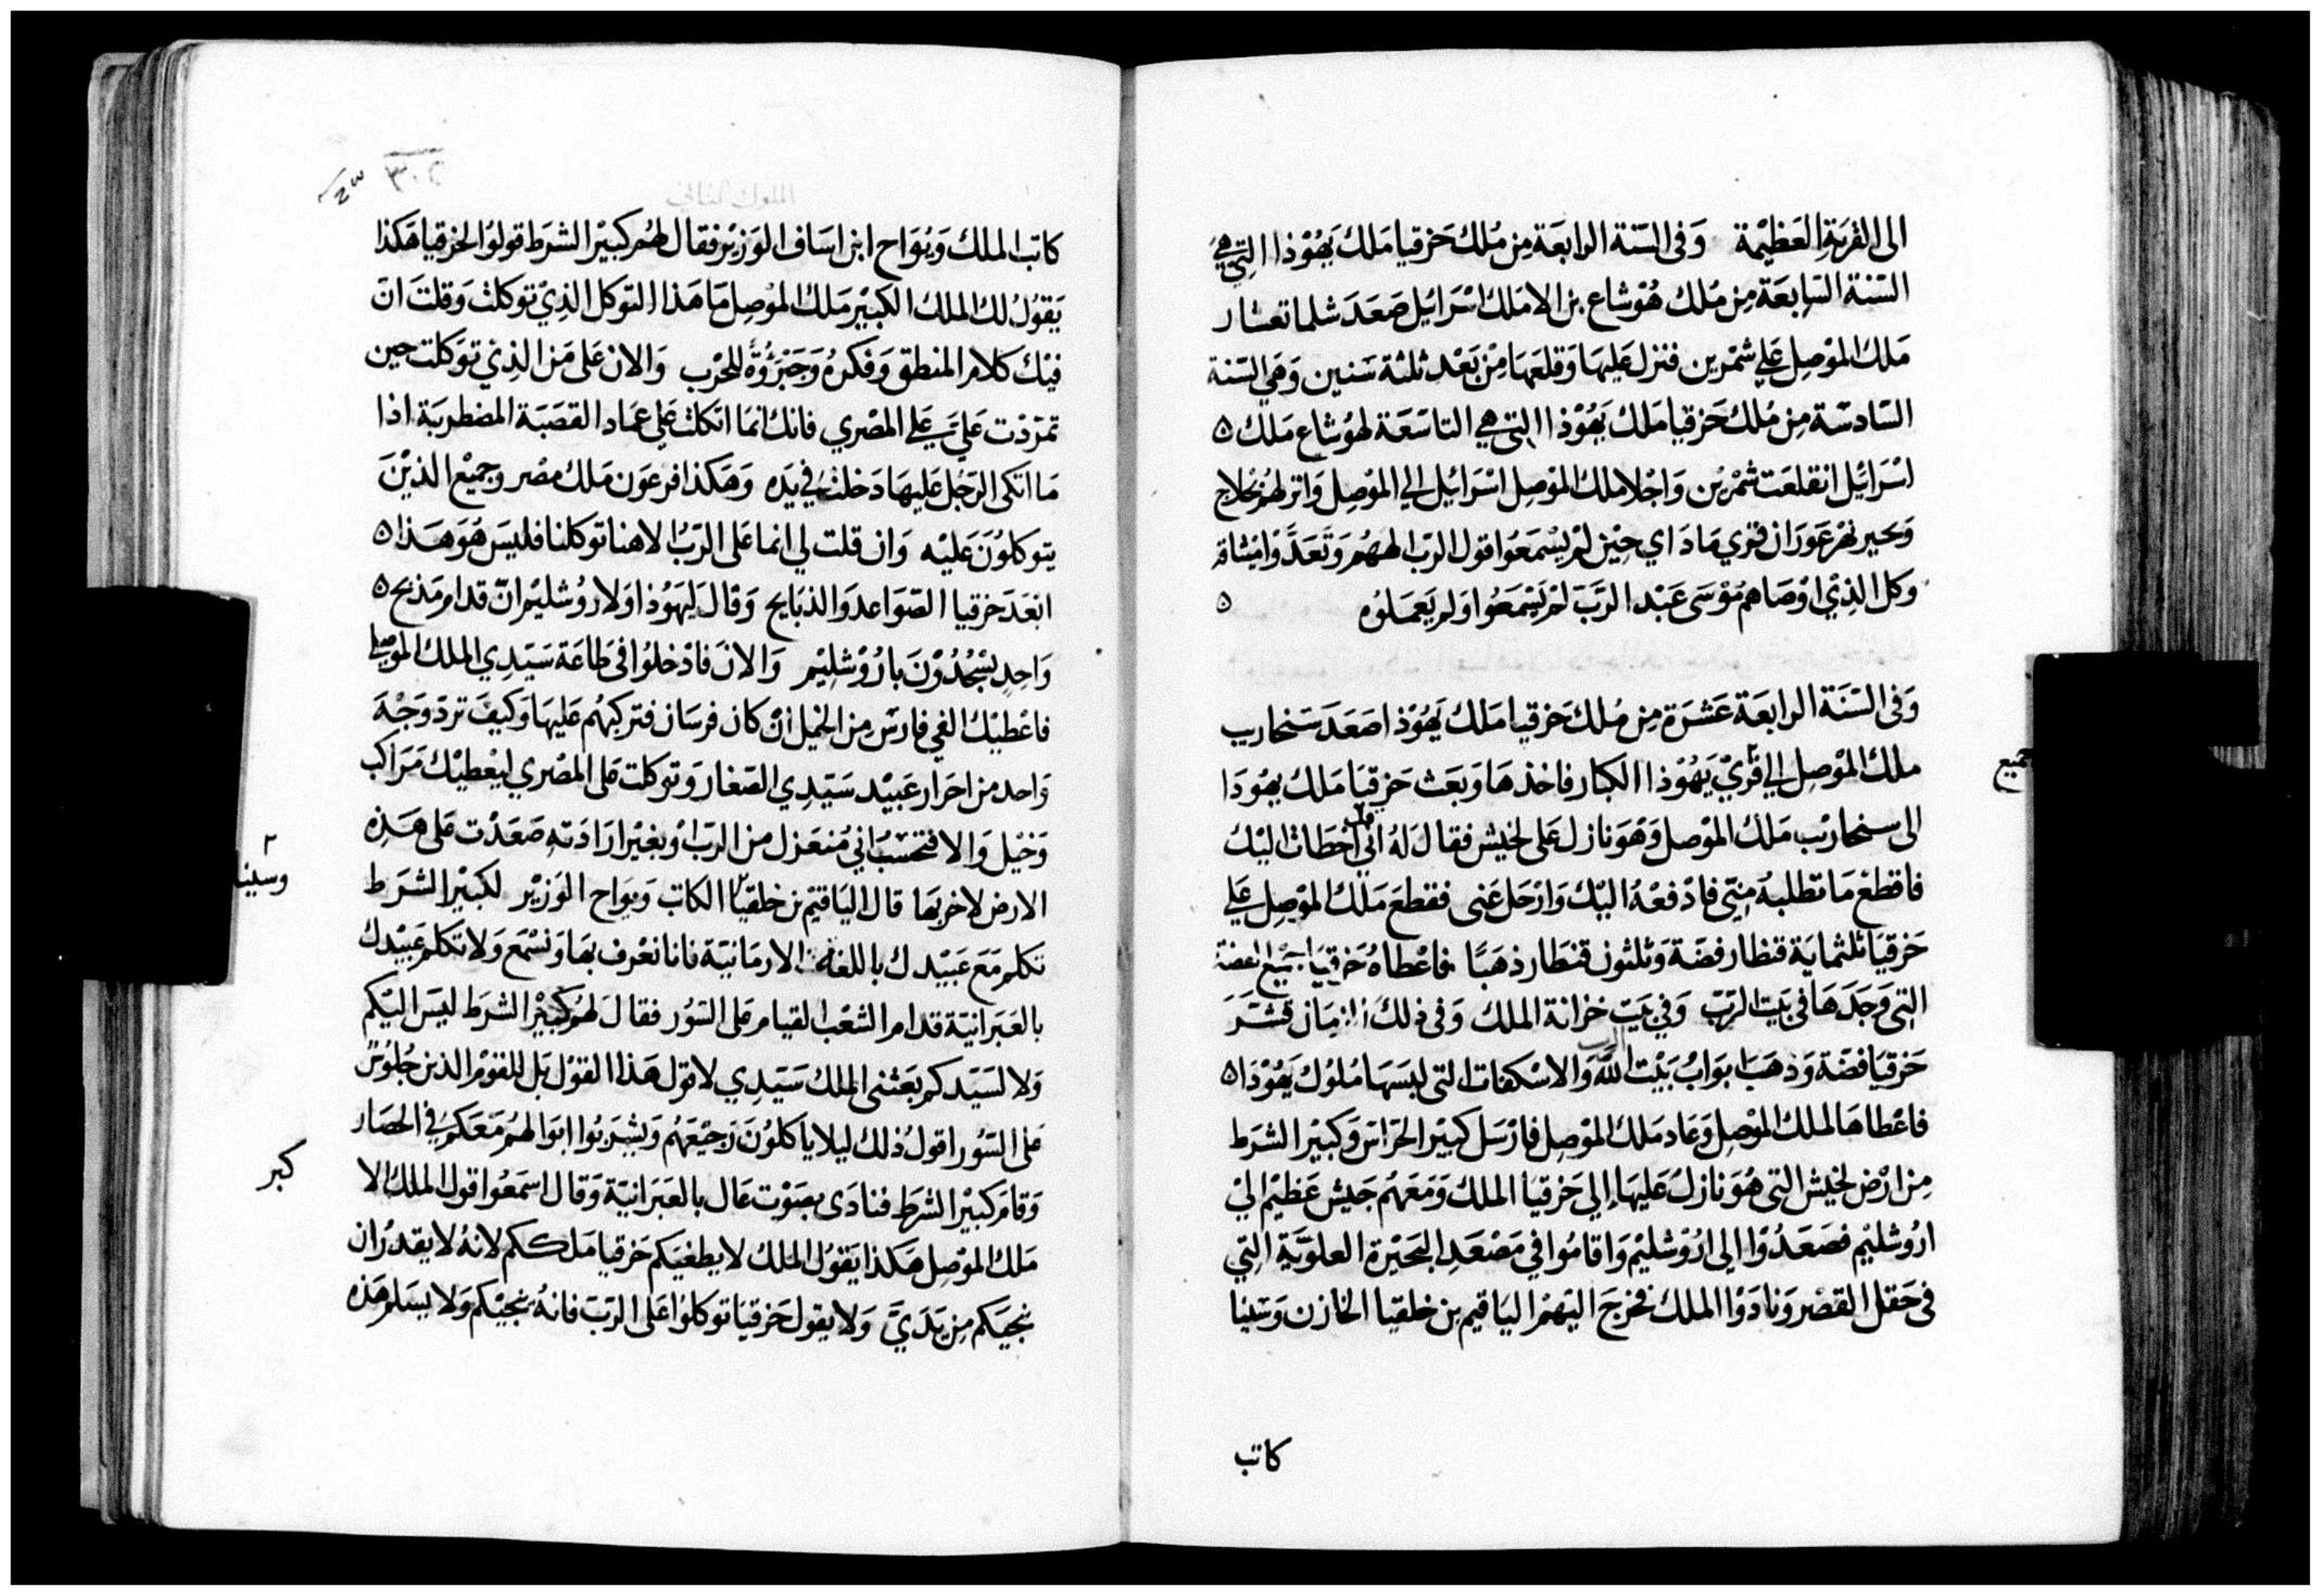 الى القرية العظيمة وفى السنة الرابعة من ملك حزقيا ملك يهوذا التي هي
السنة السابعة من ملك هوشاع بن الا ملك اسرايل صعد شلما نعسار
ملك الموصل علي شمرين فنزل عليها وقلعها من بعد ثلثة سنين وهي السنة
السادسة من ملك حزقيا ملك يهوذا التي هي التاسعة لهوشاع ملك
اسرايل انقلعت شمرين واجلا ملك الموصل اسرايل الي الموصل وانزلهم بخلاج
وبحير نهر غوران قري ماداي حين لم يسمعوا قول الرب الههم وتعدوا ميثاقه
وكل الذي اوصاهم موسى عبد الرب لم يسمعوا ولم يعملوه
وفى السنة الرابعة عشرة من ملك حزقيا ملك يهوذا صعد سنحاريب
جميع
ملك الموصل الي قري يهوذا الكبار فاخذها وبعث حزقيا ملك يهودا
الى سنحاريب ملك الموصل وهو نازل على لخيش فقال له اني اخطات اليك
فاقطع ما تطلبه مني فادفعه اليك وارحل عني فقطع ملك الموصل علي
حزقيا ثلثماية قنطار فضة وثلثون قنطار ذهبا فاعطاه حزقيا جميع الفضة
التي وجدها في بيت الرب وفي بيت خزانة الملك وفى ذلك الزمان قشر
حزقيا فضة وذهبا بواب بيت الله والاسكفات التى لبسها ملوك يهوذا
الرب
فاعطاها لملك الموصل وعاد ملك الموصل فارسل كبير الحراس وكبير الشرط
من ارض لخيش التى هو نازل عليها الي حزقيا الملك ومعهم جيش عظيم الي
اروشليم فصعدوا الى اروشليم واقاموا في مصعد البحيرة العلوية التي
فى حقل القصر ونادوا الملك فخرج اليهم الياقيم بن خلقيا الخازن وسينا
كاتب
الملوك الثاني
٣٠٢
كاتب الملك ويواح ابن اساف الوزير فقال لهم كبير الشرط قولوا لحزقيا هكذا
يقول لك الملك الكبير ملك الموصل ما هذا التوكل الذي توكلت وقلت ان
فيك كلام المنطق وفكره وجبروة للحرب والان على من الذي توكلت حين
تمردت علي علي المصري فانك انما اتكلت علي عماد القصبة المضطربة اذا
ما اتكى الرجل عليها دخلت في يده وهكذا فرعون ملك مصر وجميع الذين
يتوكلون عليه وان قلت لي انما على الرب الاهنا توكلنا فليس هو هذا
ابعد حزقيا الصواعد والذبايح وقال ليهوذا ولاروشليم ان قدام مذبح
واحد يسجدون باروشليم والان فادخلوا فى طاعة سيدي الملك الموصلي
فاعطيك الفي فارس من الخيل ان كان فرسان فتركبهم عليها وكيف ترد وجه
واحد من احرار عبيد سيدي الصغار وتوكلت على المصري ليعطيك مراكب
وخيل والا فتحسب اني منعزل من الرب او بغير ارادته صعدت على هذه
وسينا
الارض لاخربها قال الياقيم بن خلقيا الكاتب ويواح الوزير لكبير الشرط
تكلم مع عبيدك باللغة الارمانية فانا نعرف بها ونسمع ولا تكلم عبيدك
بالعبرانية قدام الشعب القيام على السور فقال لهم كبير الشرط ليس اليكم
ولا لسيدكم بعثنى الملك سيدي لاقول هذا القول بل للقوم الذين جلوس
على السور اقول ذلك ليلا ياكلون رجيعهم ويشربوا ابوالهم معكم في الحصار
كبر
وقام كبير الشرط فنادى بصوت عال بالعبرانية وقال اسمعوا قول الملك الا
ملك الموصل هكذا يقول الملك لا يطغيكم حزقيا ملككم لانه لا يقدر ان
ينجيكم من يدي ولا يقول حزقيا توكلوا على الرب فانه ينجيكم ولا يسلم هذه